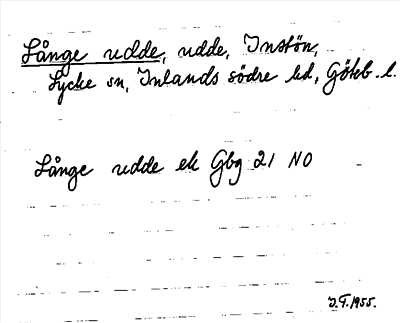 Långe udde, udde, Instön,
Lycke sn, Inlands södre hd, Göteb. l.
Långe udde ek Gbg 21 NO
J. F. 1955.